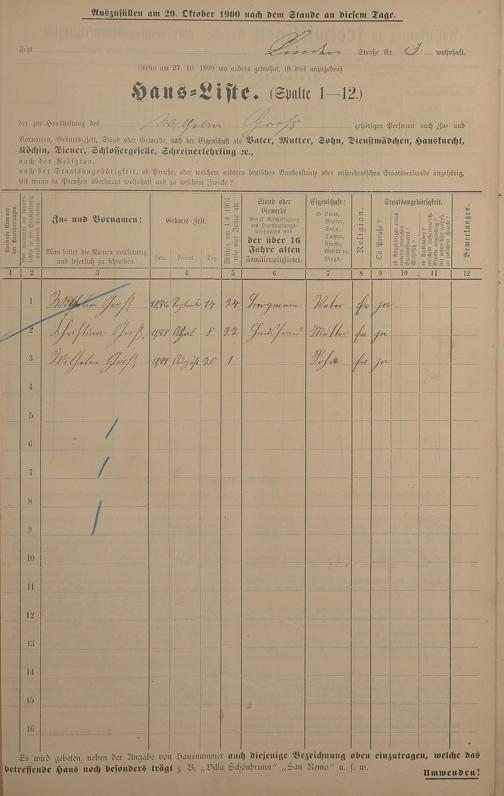 Auszufüllen am 29. Oktober 1900 nach dem Stande an diesem Tage.
Jetzt Linden Straße Nr. 3 wohnhaft.
(wenn am 27. 10. 1899 wo anders gewohnt, ist dies anzugeben)
Haus=Liste. (Spalte 1—12.)
der zur Haushaltung des Wilhelm gehörigen Personen nach Zu= und
Vornamen, Geburts=Zeit, Stand oder Gewerbe, nach der Eigenschaft als Vater, Mutter, Sohn, Dienstmädchen, Hausknecht,
Köchin, Diener, Schlossergeselle, Schreinerlehrling ꝛc.,
nach der Religion,
nach der Staatsangehörigkeit, ob Preuße, oder welchem anderen deutschen Bundesstaate oder außerdeutschen Staatsverbande angehörig,
seit wann in Preußen überhaupt wohnhaft und zu welchem Zwecke?
Zu= und Vornamen:
Man bittet die Namen vollständig
und leserlich zu schreiben.
Geburts=Zeit.
Jahr. Monat. Tag
Stand oder
Gewerbe
der über 16
Jahre alten
Familienmitglieder.
Eigenschaft:
ob Vater,
Mutter,
Sohn,
Tochter,
Knecht,
Geselle rc.
Magd.
Religion.
Staatsangehörigkeit.
Ob Preuße?
Bemerkungen.
1 2 3 4 5 6 7 8 9 10 11 12
1 Wilhelm 14 24 Bergmann Vater ev ja
2 Christina April 8 22 Hausfrau Mutter ev ja
3 Wilhelm 20 1 Sohn ev ja
4
5
6
7
8
9
10
11
12
13
14
15
16
Es wird gebeten, neben der Angabe von Hausnummer auch diejenige Bezeichnung oben einzutragen, welche das
betreffende Haus noch besonders trägt z. B. „Villa Schönbrunn" „San Remo" u. s. w.
Umwenden!